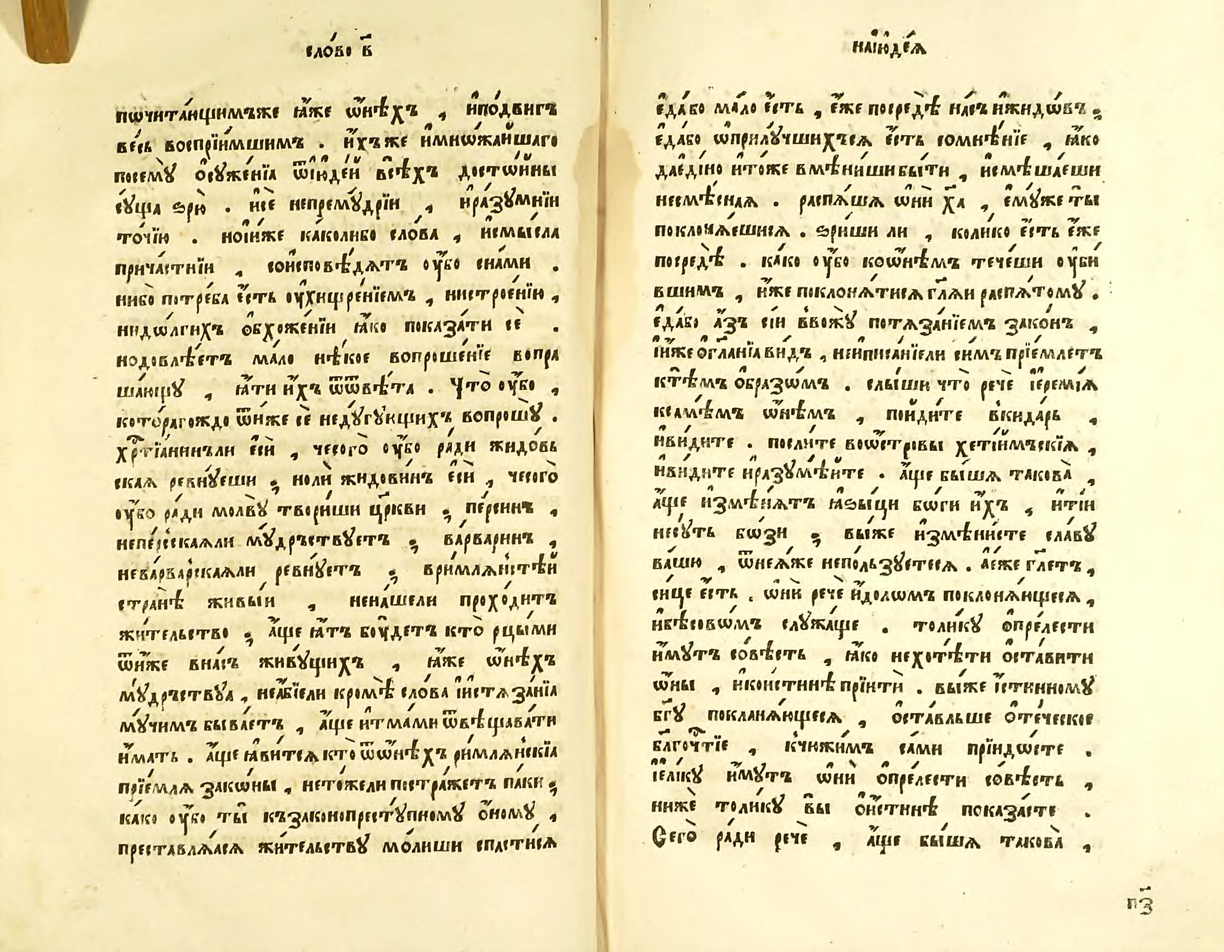 сло́во в҃
пѡчита́ющимъже ꙗ҆́же ѡ҆́нѣхъ , и҆по́двигъ
ве́сь воспрїи́мшимъ . и҆́хъже и҆мнѡ́жайшаго
посемꙋ̀ ѻ҆сꙋже́нїѧ ѿїꙋдє́и всѣ́хъ досто́йны
сꙋ́ща ѕрю̀ . и҆се̏ непремꙋ́дрїи , и҆разꙋ́мнїи
то́чїю . нои҆́иже како́либо сло́ва , и҆смы́сла
прича́стнїи , сои҆сповѣ́дѧтъ ᲂу҆́бо сна́ми .
нибо̀ потре́ба є҆́сть ᲂу҆хищре́нїемъ , нистрое́нїю ,
нидѡ́лгихъ ѻ҆бхоже́нїи ꙗ҆́ко показа́ти сѐ .
нодовлѣ́етъ ма́ло нѣ́кое вопроше́нїе вопра
ша́ющꙋ , ꙗ҆́ти и҆́хъ ѿѿвѣ́та . Что̀ ᲂу҆́бо ,
кото́рагождо ѿи́же сѐ недꙋ́гꙋющихъ вопрошꙋ̀ .
хрⷭ҇тїа́нинъли є҆сѝ , чесого̀ ᲂу҆́бо ра́ди жидо́вь
скаѧ ревнꙋ́еши ; но́ли жидови́нъ є҆сѝ , чесого̀
ᲂу҆́бо ра́ди молвꙋ̀ твори́ши цр҃кви ; пе́рсинъ ,
непе́рсскаѧли мꙋ́дръствꙋетъ ; ва́рваринъ ,
нева́рварскаѧли ревнꙋ́етъ ; вримлѧ́нстѣй
странѣ̀ живы́и , нена́шели прохо́дитъ
жи́тельство ; а҆́ще ꙗ҆́тъ бꙋ́детъ кто̀ рцы́ми
ѿи́же вна́съ живꙋ́щихъ , ꙗ҆́же ѡ҆́нѣхъ
мꙋ́дръствꙋа , неа҆́бїели кромѣ̀ сло́ва и҆истѧза́нїа
мꙋ́чимъ быва́етъ , а҆́ще и҆тма́ми ѿвѣщава́ти
и҆́мать . а҆́ще ꙗ҆ви́тсѧ кто̀ ѿѡ҆́нѣхъ ри́млѧнскїа
прїе́млѧ зако́ны , нето́жели постра́жетъ па́ки ;
ка́ко ᲂу҆́бо ты̀ къзаконопрестꙋ́пномꙋ ѻ҆́номꙋ ,
преставлѧ́ѧсѧ жи́тельствꙋ мо́лиши спасти́сѧ
наїꙋде́ѧ
є҆да́бо ма́ло є҆́сть , є҆́же посредѣ̀ на́съ и҆жидѡ́въ ;
є҆да́бо ѡ҆прилꙋ́чшихъсѧ є҆́сть сомнѣ́нїе , ꙗ҆́ко
даедї́но и҆то́же вмѣни́ши бы́ти , и҆смѣша́еши
несмѣ́снаѧ . распѧ́шѧ ѡ҆нѝ хⷭ҇а , є҆мꙋ́же ты̀
поклонѧ́ешисѧ . ѕри́ши ли , коли́ко є҆́сть є҆́же
посредѣ̀ . ка́ко ᲂу҆́бо коѡ҆́нѣмъ тече́ши ᲂу҆би́
вшимъ , и҆́же поклонѧ́тисѧ гл҃ѧй распѧ́томꙋ .
є҆да́бо а҆́зъ сїѝ ввожꙋ̀ потѧза́нїемъ зако́нъ ,
и҆и҆́же ѻ҆гла́нїа ви́дъ , неи҆писа́нїели си́мъ прїе́млетъ
ктѣ́мъ ѻ҆́бразѡмъ . слы́ши что̀ речѐ і҆еремі́ѧ
ксамѣ́мъ ѡ҆́нѣмъ , поиди́те вки́дарь ,
и҆ви́дите . посли́те воѡ҆́стровы хетїи́мъскїѧ ,
и҆ви́дите и҆разꙋмѣ́йте . а҆́ще бы́шѧ такова̀ ,
а҆́ще и҆змѣнѧ́тъ ꙗ҆зы́цы бѡ́ги и҆́хъ , и҆ті́и
несꙋ́ть бѡ́зи ; вы́же и҆змѣни́сте сла́вꙋ
ва́шю , ѿнеѧ́же непо́льзꙋетесѧ . а҆е́же гл҃етъ ,
си́це є҆́сть . ѡ҆нѝ речѐ и҆́долѡмъ поклонѧ́ющесѧ ,
и҆бѣ́совѡмъ слꙋжа́ще . толи́кꙋ ѻ҆пре́лести
и҆́мꙋтъ со́вѣсть , ꙗ҆́ко нехотѣ́ти ѻ҆ста́вити
ѡ҆́ны , и҆кои́стинѣ прїитѝ . вы́же и҆́стинномꙋ
бг҃ꙋ покланѧ́ющесѧ , ѻ҆ста́вльше ѻ҆те́ческое
бл҃гоче́тїе , кчюжи́мъ са́ми прїидо́сте .
і҆є҆ли́кꙋ и҆́мꙋтъ ѡ҆нѝ ѻ҆пре́лести со́вѣсть ,
нижѐ толи́кꙋ вы̀ ѻ҆и́стинѣ показа́сте .
Сего̀ ра́ди речѐ , а҆́ще бы́шѧ такова̀ ,
пз҃